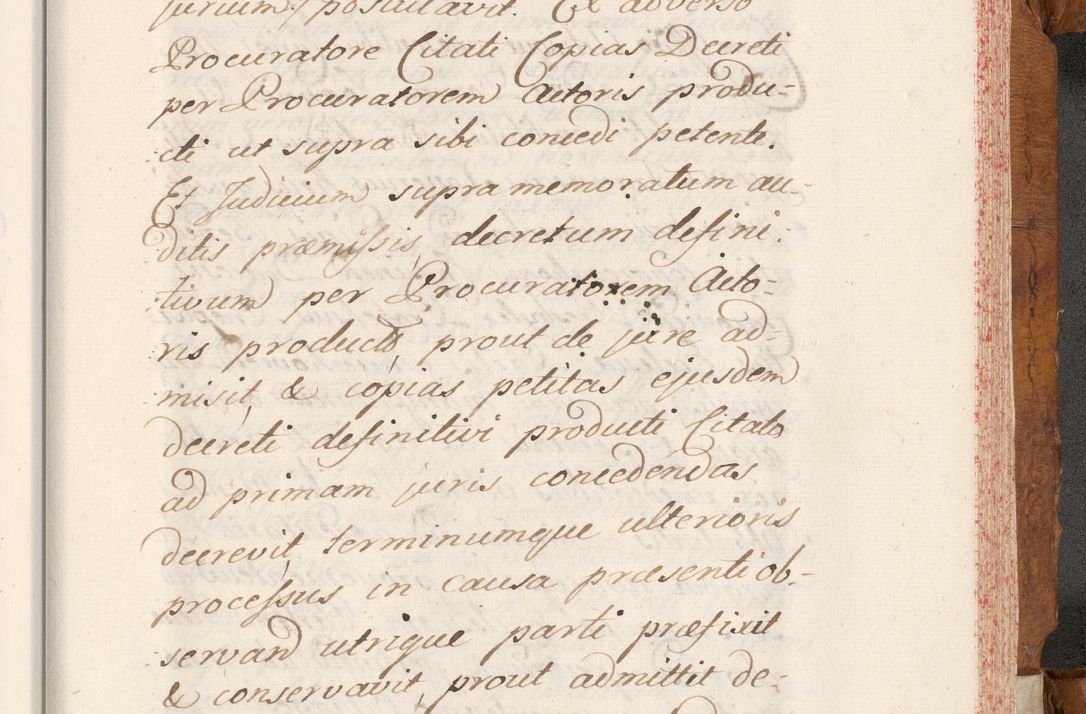 jurium postulavit. Ex adverso
Procuratore Citati Copias Decreti
per Procuratorem Actoris produ-
cti ut supra sibi concedi petente.
Et Judicium supra memoratum au-
ditis præmissis, decretum defini-
tivum per Procuratorem Acto-
ris producti, prout de jure ad-
misit, & copias petitas ejusdem
decreti definitivi producti Citato
ad primam juris concedendas
decrevit, terminumque ulterioris
processus in causa præsenti ob-
servand utrique parti præfixit
& conservavit, prout admittit de-